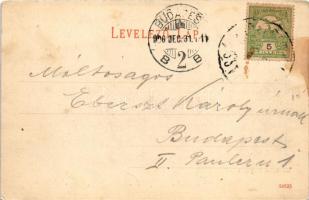 LEVELEZŐ-LAP.
BUDAPEST
906 DEC. 31.
B 2 B
5
Méltóságos
Eberszt Károly úrnak
Budapest
II. Pauler u 1.